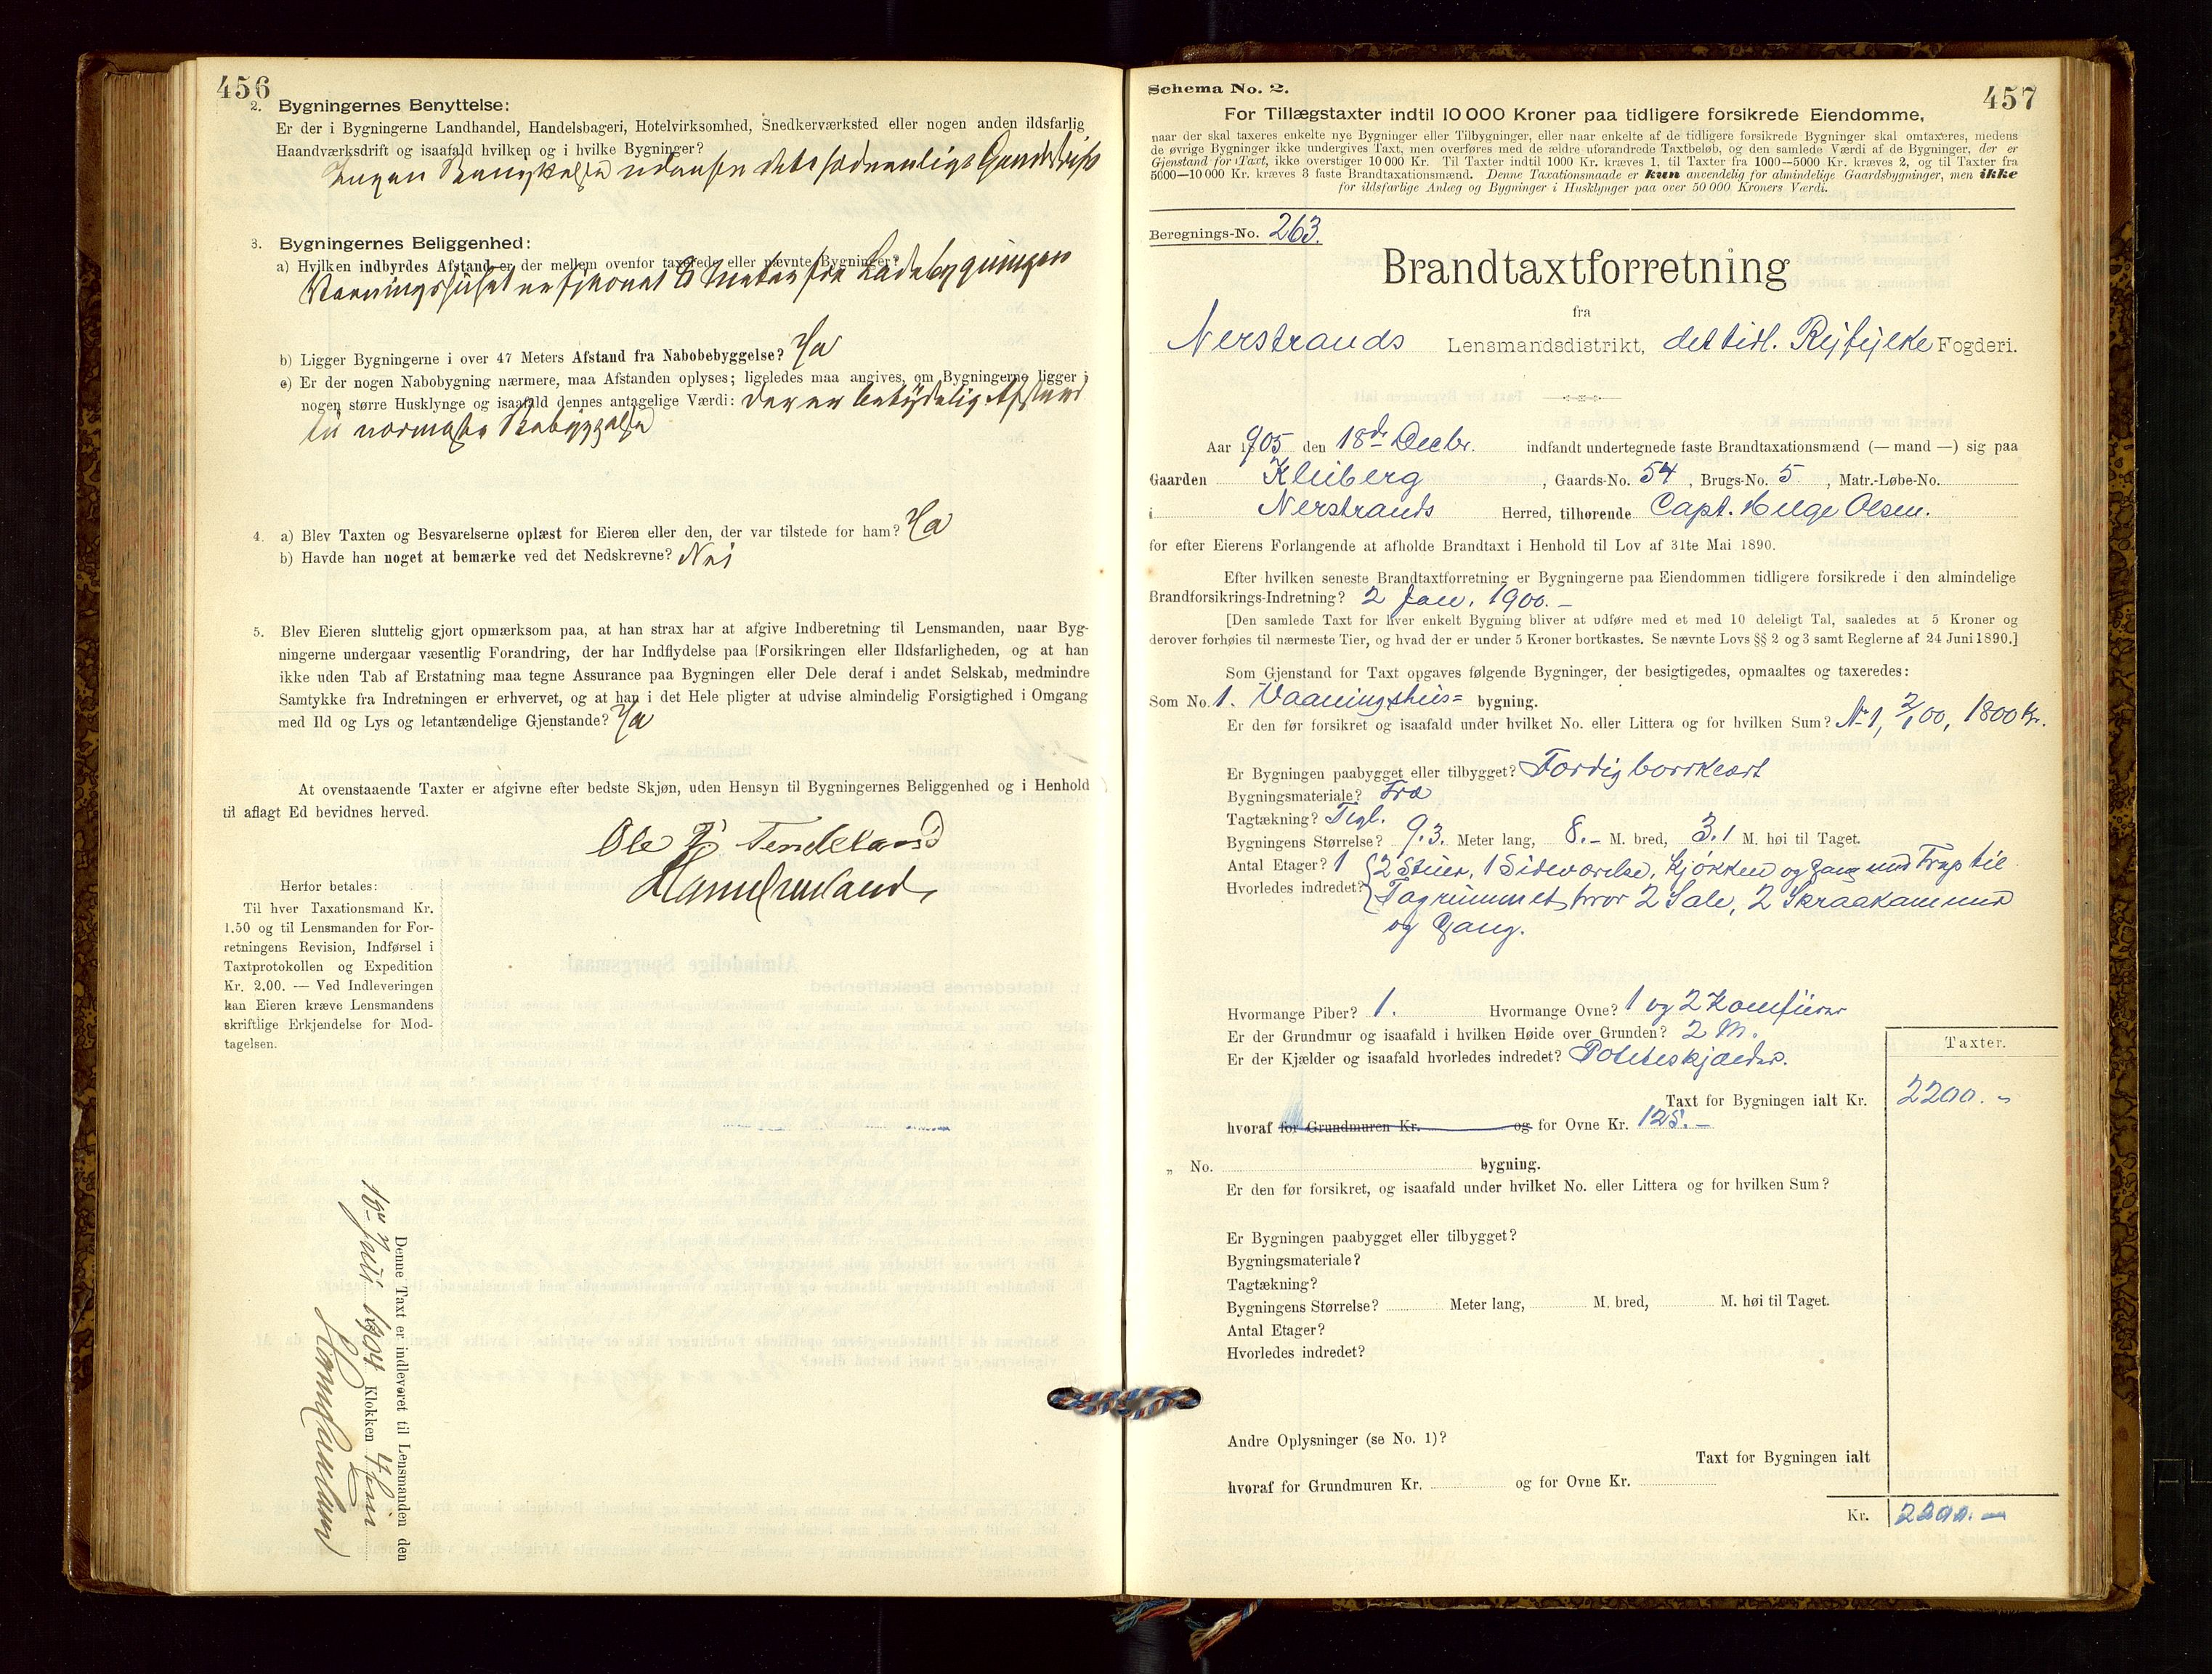 456
2. Bygningernes Benyttelse:
Er der i Bygningerne Landhandel, Handelsbageri, Hotelvirksomhed, Snedkerværksted eller nogen anden ildsfarlig
Haandværksdrift og isaafald hvilken og i hvilke Bygninger?
Ingen Beskjæftigelse udenfor det sædvanlige Gaardsdrift
3. Bygningernes Beliggenhed:
a) Hvilken indbyrdes Afstand er der mellem ovenfor taxerede eller nævnte Bygninger?
Vaaningshuset er fjernet 8 Meter fra Ladebygningen
b) Ligger Bygningerne i over 47 Meters Afstand fra Nabobebyggelse? Ja
c) Er der nogen Nabobygning nærmere, maa Afstanden oplyses; ligeledes maa angives, om Bygningerne ligger i
nogen større Husklynge og isaafald dennes antagelige Værdi: Der er betydelig Afstand
til nærmeste Bebyggelse
4. a) Blev Taxten og Besvarelserne oplæst for Eieren eller den, der var tilstede for ham? Ja
b) Havde han noget at bemærke ved det Nedskrevne? Nei
5. Blev Eieren sluttelig gjort opmærksom paa, at han strax har at afgive Indberetning til Lensmanden, naar Byg-
ningerne undergaar væsentlig Forandring, der har Indflydelse paa Forsikringen eller Ildsfarligheden, og at han
ikke uden Tab af Erstatning maa tegne Assurance paa Bygningen eller Dele deraf i andet Selskab, medmindre
Samtykke fra Indretningen er erhvervet, og at han i det Hele pligter at udvise almindelig Forsigtighed i Omgang
med Ild og Lys og letantændelige Gjenstande? Ja
At ovenstaaende Taxter er afgivne efter bedste Skjøn, uden Hensyn til Bygningernes Beliggenhed og i Henhold
til aflagt Ed bevidnes herved.
Ole
Herfor betales:
Til hver Taxationsmand Kr.
1.50 og til Lensmanden for For-
retningens Revision, Indførsel i
Taxtprotokollen og Expedition
Kr. 2.00. — Ved Indleveringen
kan Eieren kræve Lensmandens
skriftlige Erkjendelse for Mod-
tagelsen.
Denne Taxt er indleveret til Lensmanden den
1904 Klokken 4
Schema No. 2.
457
For Tillægstaxter indtil 10 000 Kroner paa tidligere forsikrede Eiendomme,
naar der skal taxeres enkelte nye Bygninger eller Tilbygninger, eller naar enkelte af de tidligere forsikrede Bygninger skal omtaxeres, medens
de øvrige Bygninger ikke undergives Taxt, men overføres med de ældre uforandrede Taxtbeløb, og den samlede Værdi af de Bygninger, der er
Gjenstand for Taxt, ikke overstiger 10 000 Kr. Til Taxter indtil 1000 Kr. kræves 1, til Taxter fra 1000—5000 Kr. kræves 2, og til Taxter fra
5000—10 000 Kr. kræves 3 faste Brandtaxationsmænd. Denne Taxationsmaade er kun anvendelig for almindelige Gaardsbygninger, men ikke
for ildsfarlige Anlæg og Bygninger i Husklynger paa over 50 000 Kroners Værdi.
Beregnings-No. 263.
Brandtaxtforretning
fra
Nerstrands Lensmandsdistrikt, det tidl. Ryfylke Fogderi.
Aar 1905 den 18de Decbr. indfandt undertegnede faste Brandtaxationsmænd (— mand —) sig paa
Gaarden Kleiberg, Gaards-No. 54, Brugs-No. 5, Matr.-Løbe-No.
i Nerstrands Herred, tilhørende Capt. Helge Olsen.
for efter Eierens Forlangende at afholde Brandtaxt i Henhold til Lov af 31te Mai 1890.
Efter hvilken seneste Brandtaxtforretning er Bygningerne paa Eiendommen tidligere forsikrede i den almindelige
Brandforsikrings-Indretning? 2 Jan. 1900. –
[Den samlede Taxt for hver enkelt Bygning bliver at udføre med et med 10 deleligt Tal, saaledes at 5 Kroner og
derover forhøies til nærmeste Tier, og hvad der er under 5 Kroner bortkastes. Se nævnte Lovs §§ 2 og 3 samt Reglerne af 24 Juni 1890.]
Som Gjenstand for Taxt opgaves følgende Bygninger, der besigtigedes, opmaaltes og taxeredes:
Som No. 1. Vaaningshus= bygning.
Er den før forsikret og isaafald under hvilket No. eller Littera og for hvilken Sum? No 1, 2/1 00, 1800 Kr.
Er Bygningen paabygget eller tilbygget?
Bygningsmateriale? Træ
Tagtækning? Tegl.
Bygningens Størrelse? 9.3. Meter lang, 8.– M. bred, 3.1 M. høi til Taget.
Antal Etager? 1 2 Stuer, 1 Sideværelse, Kjøkken og Gang med Trap til
Hvorledes indredet? Tagrummet hvor 2 Sale, 2 Skraakammere
og Gang.
Hvormange Piber? 1. Hvormange Ovne? 1 og 2 Komfürer
Er der Grundmur og isaafald i hvilken Høide over Grunden? 2 M.
Er der Kjælder og isaafald hvorledes indredet? Poteteskjælder.
Taxter.
Taxt for Bygningen ialt Kr. 2200. –
hvoraf for Grundmuren Kr. og for Ovne Kr. 125. –
„ No. bygning.
Er den før forsikret, og isaafald under hvilket No. eller Littera og for hvilken Sum?
Er Bygningen paabygget eller tilbygget?
Bygningsmateriale?
Tagtækning?
Bygningens Størrelse? Meter lang, M. bred, M. høi til Taget.
Antal Etager?
Hvorledes indredet?
Andre Oplysninger (se No. 1)?
Taxt for Bygningen ialt
hvoraf for Grundmuren Kr. og for Ovne Kr.
Kr. 2200. –